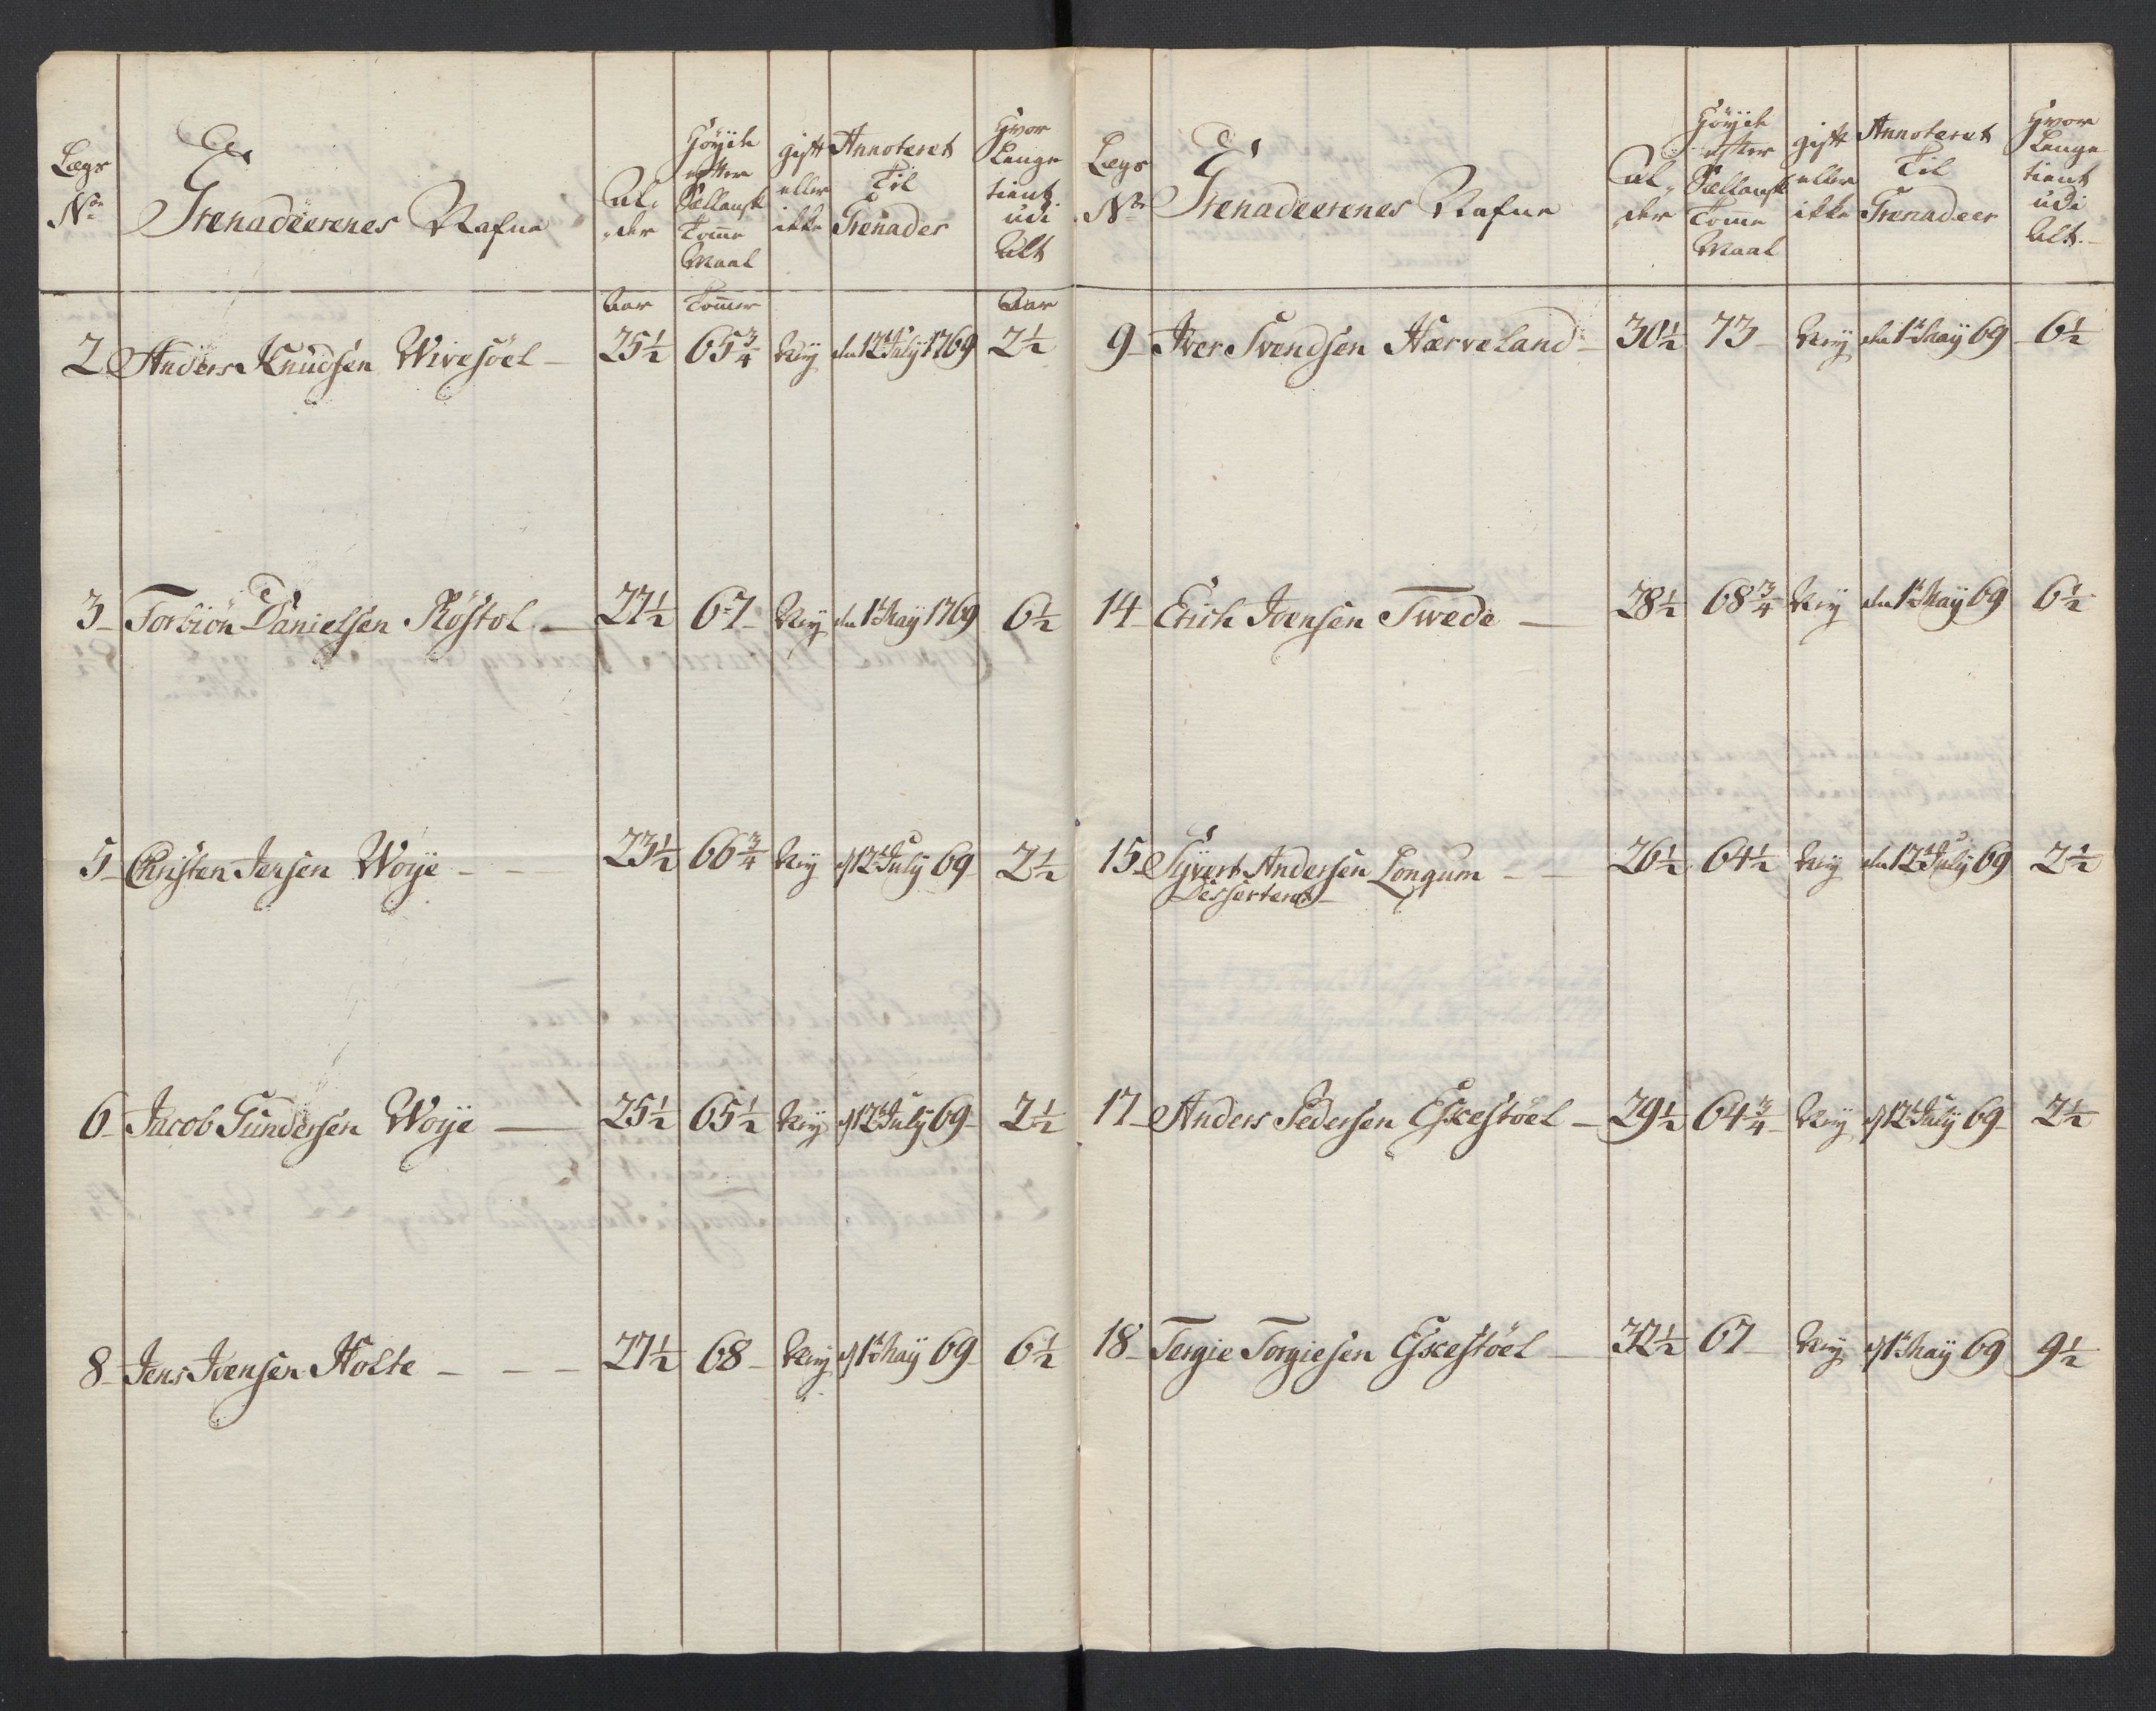 Lægs
No
Grenadeerenes Nafne
Al-
der
Höyde
efter
Siellansk
Tomme
Maal
gift
eller
ikke
Annoteret
Til
Grenader
Hvor
Lenge
tient
udi
Alt
Aar Tommer Aar
2 Anders Knudsen Wivesöel - 25½ 65¾ Ney den 12t July 1769 2½
3 Torbiön Danielsen Röstöl - 27½ 67 Ney den 1t May 1769 6½
5 Christen Jensen Woye - - 23½ 66¾ Ney d 12t July 69 2½
6 Jacob Gundersen Woye - 25½ 65½ Ney d 12t July 69 2½
8 Jens Joensen Holte - - - 27½ 68 Ney d 1t May 69 6½
Lægs
No
Grenadeerenes Nafne
Al-
der
Höyde
efter
Siellansk
Tomme
Maal
gift
eller
ikke
Annoteret
Til
Grenadeer
Hvor
Lenge
tient
udi
Alt.
9 Iver Svendsen Hærveland - 30½ 73 Ney den 1t May 69 6½
14 Erich Joensen Twede - 28½ 68¾ Ney den 1t May 69 6½
15 Syvert Andersen Longum - - 26½ 64½ Ney den 12t July 69 2½
Desserteret
17 Anders Pedersen Eskestöel - 29½ 64¾ Ney d 12t July 69 2½
18 Tergie Torgiesen Eskestöel - 32½ 67 Ney d 1t May 69 9½